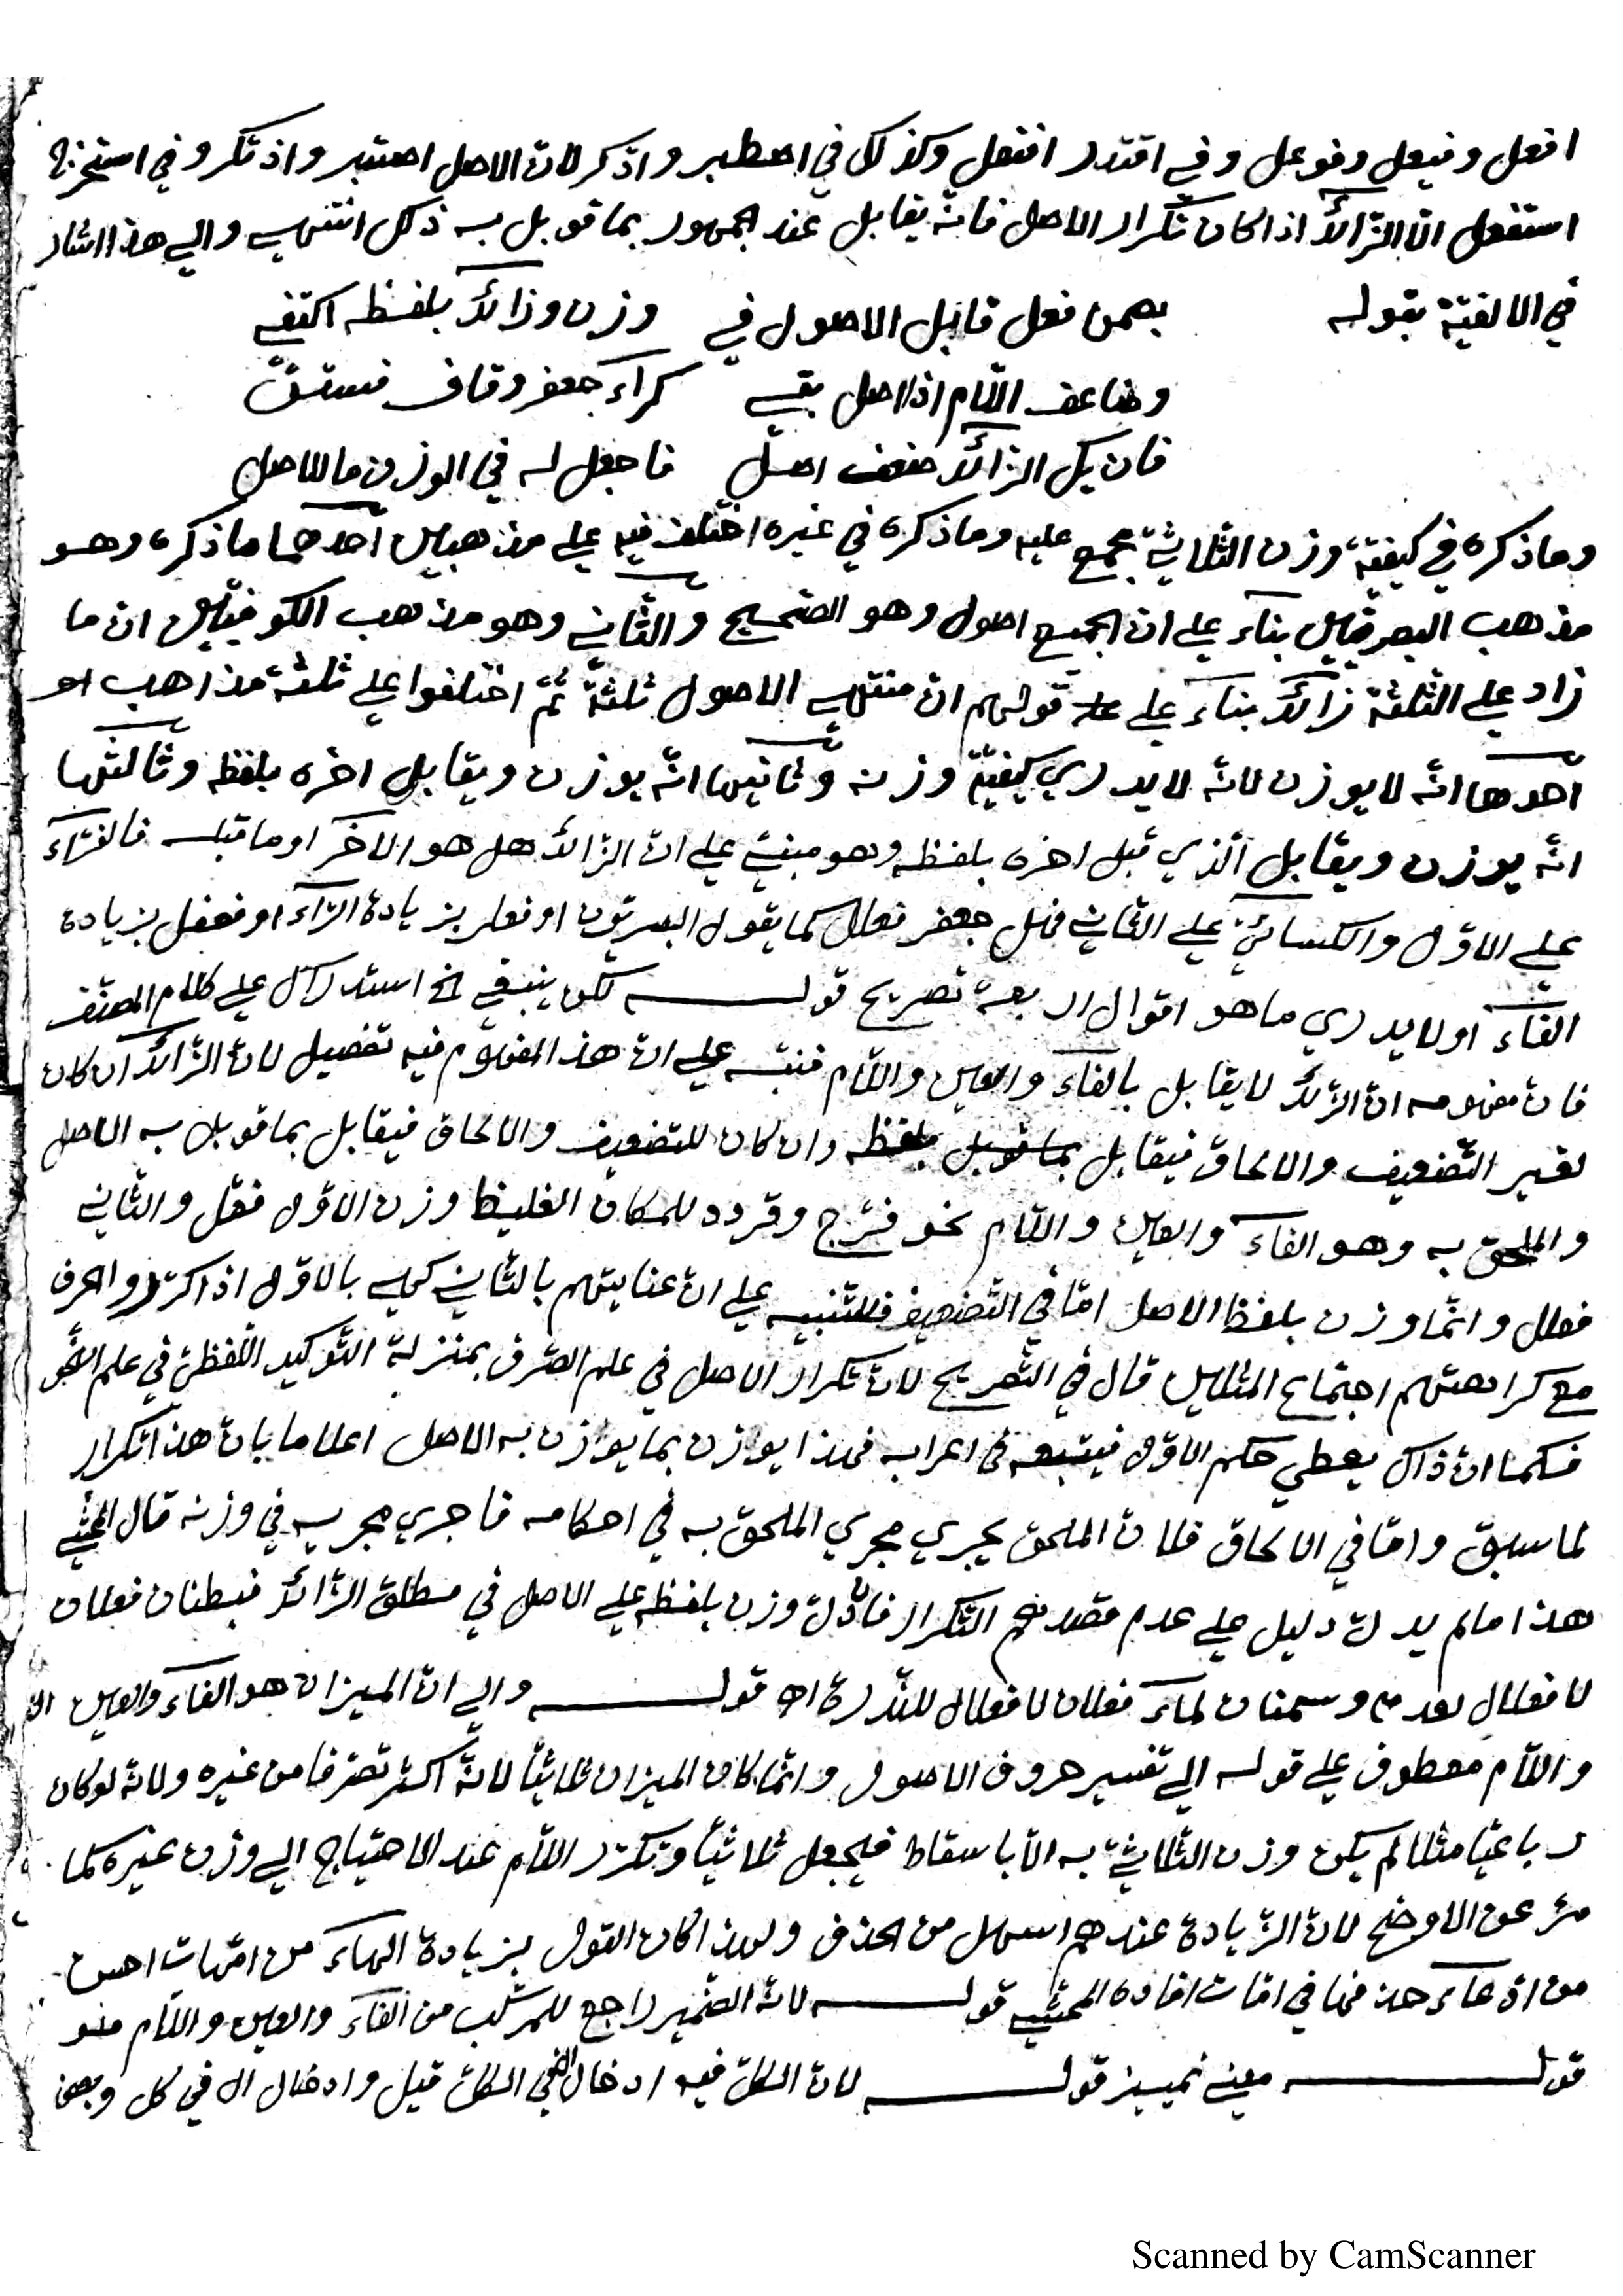 افعل وفيعل وفوعل وفي اقتدر افتعل وكذلك في اصطبر واذكر لان الاصل اصتبر واذتكر وفي استخرج
استفعل الا الزائد اذا كان تكرار الاصل فانه يقابل عند الجمهور بما قوبل به ذلك انتهي والي هذا اشار
في الالفية بقوله بضمن فعل قابل الاصول في وزن وزائد بلفظه اكتفي
وضاعف اللام اذا اصل بقي كراء جعفر وقاف فستق
فان يك الزائد ضعف اصل فاجعل له في الوزن ما للاصل
وما ذكره في كيفية وزن الثلاثي مجمع عليه وما ذكره في غيره اختلف فيه علي مذهبين احدهما ما ذكره وهو
مذهب البصريين بناء علي ان الجميع اصول وهو الصحيح والثاني وهو مذهب الكوفيين ان ما
زاد علي الثلثة زائد بناء علي قولهم ان منتهي الاصول ثلثة ثم اختلفوا علي ثلثة مذاهب
احدها انه لا يوزن لانه لا يدري كيفية وزنه وثانيها انه يوزن ويقابل اخره بلفظه وثالثها
انه يوزن ويقابل الذي قبل اخره بلفظه وهو مبني علي ان الزائد هل هو الاخر او ما قبله فالفراء
علي الاول والكسائي علي الثاني فهل جعفر فعلل كما يقول البصريون او فعلر بزيادة الراء او فعفل بزيادة
الفاء او لا يدري ما هو اقوال اربعة تصريح قوله لكن ينبغي الخ استدراك علي كلام المصنف
فان مفهومه ان الزائد لا يقابل بالفاء والعين واللام فنبه علي ان هذا المفهوم فيه تفصيل لان الزائد ان كان
لغير التضعيف والالحاق فيقابل بما قوبل بلفظه وان كان للتضعيف والالحاق فيقابل بما قوبل به الاصل
والملحق به وهو الفاء والعين واللام نحو فرج وقردد للمكان الغليظ وزن الاول فعل والثاني
فعلل وانما وزن بلفظ الاصل اما في التضعيف فللتنبيه علي ان عنايتهم بالثاني كهي بالاول اذا كرروا حرف
مع كراهتهم اجتماع المثلين قال في التصريح لان تكرار الاصل في علم الصرف بمنزلة التوكيد اللفظي في علم النحو
فكما ان ذاك يعطي حكم الاول فيتبعه في اعرابه فهذا يوازن بما يوازن به الاصل اعلاما بان هذا تكرار
لما سبق واما في الالحاق فلان الملحق يجري مجري الملحق به في احكامه فاجري مجريه في وزنه قال المحشي
هذا ما لم يدل دليل علي عدم قصدهم التكرار فان دل وزن بلفظه علي الاصل في مطلق الزائد فبطنان فعلان
لا فعلال لعدمه وسمنان لماء فعلان لا فعلال للندرة اه قوله والي ان الميزان هو الفاء والعين
واللام معطوف علي قوله الي تفسير حروف الاصول وانما كان الميزان ثلاثيا لانه اكثر تصرفا من غيره ولانه لو كان
رباعيا مثلا لم يكن وزن الثلاثي به الا باسقاط فيجعل ثلاثيا وتكرر اللام عند الاحتياج الي وزن غيره كما
مر عن الاوضح لان الزيادة عندهم اسهل من الحذف ولهذا كان القول بزيادة الهاء من امهات احسن
من ادعاء حذفها في امات افاده المحشي قوله لان الضمير راجع للمركب من الفاء والعين واللام
قوله معني تمييز قوله لان الكل فيه ادخال ال في الكل قيل وادخال ال في كل وبعض
Scanned by CamScanner